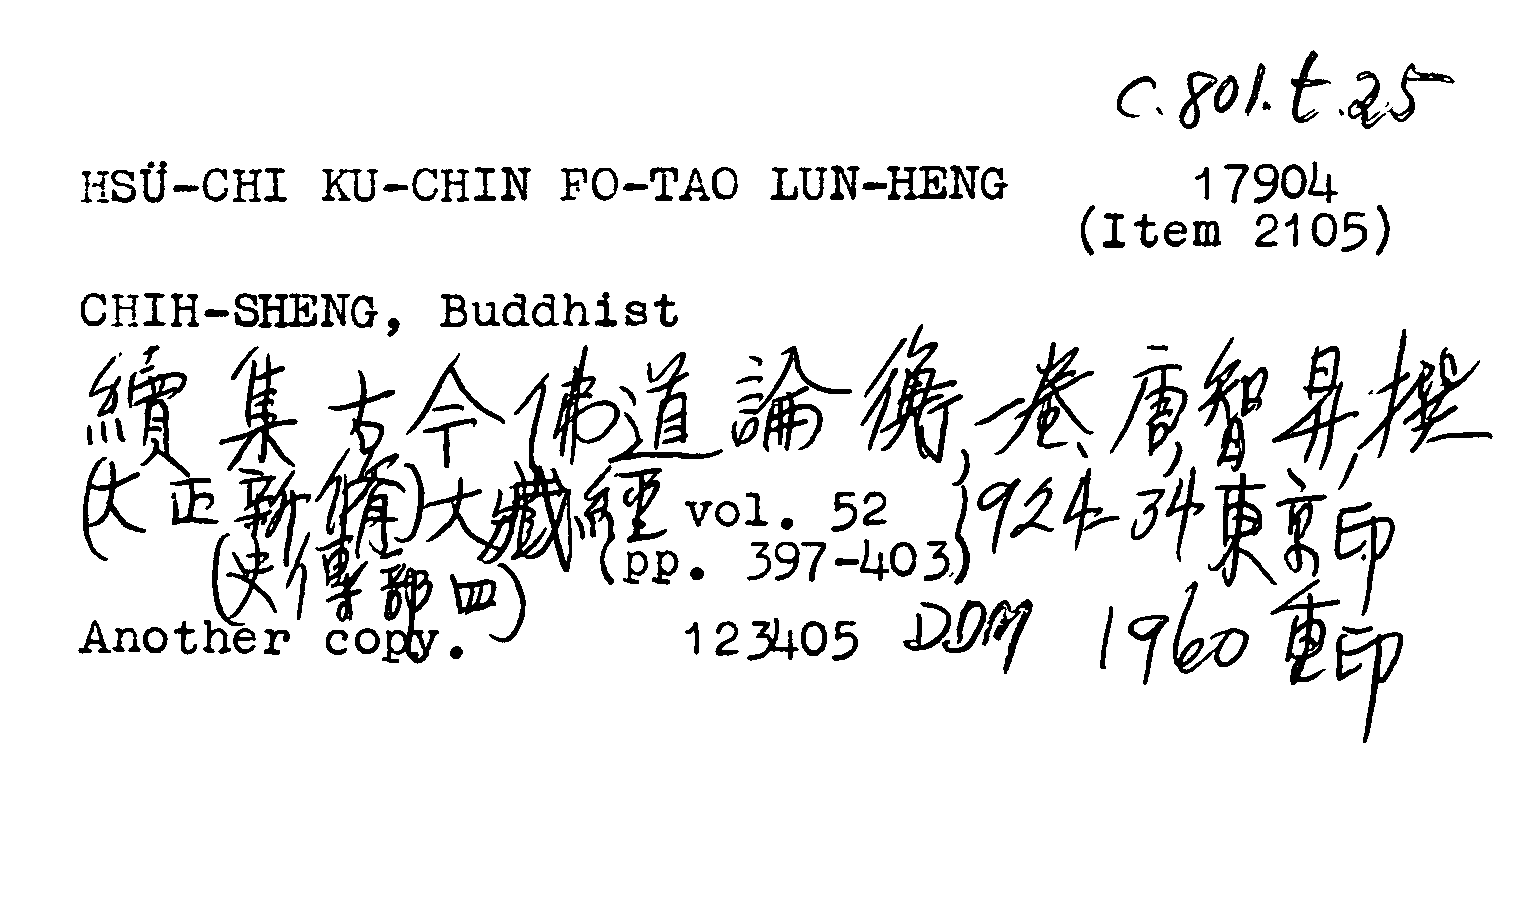 C.801.t.25
HSÜ-CHI KU-CHIN FO-TAO LUN-HENG 17904
(Item 2105)
CHIH-SHENG, Buddhist
續集古今佛道論衡,一卷、唐,智昇,撰
(大正新脩)大藏經 vol. 52 1924-34東京印
(史傳部四) (pp. 397-403)
Another copy. 123405 DDM 1960重印